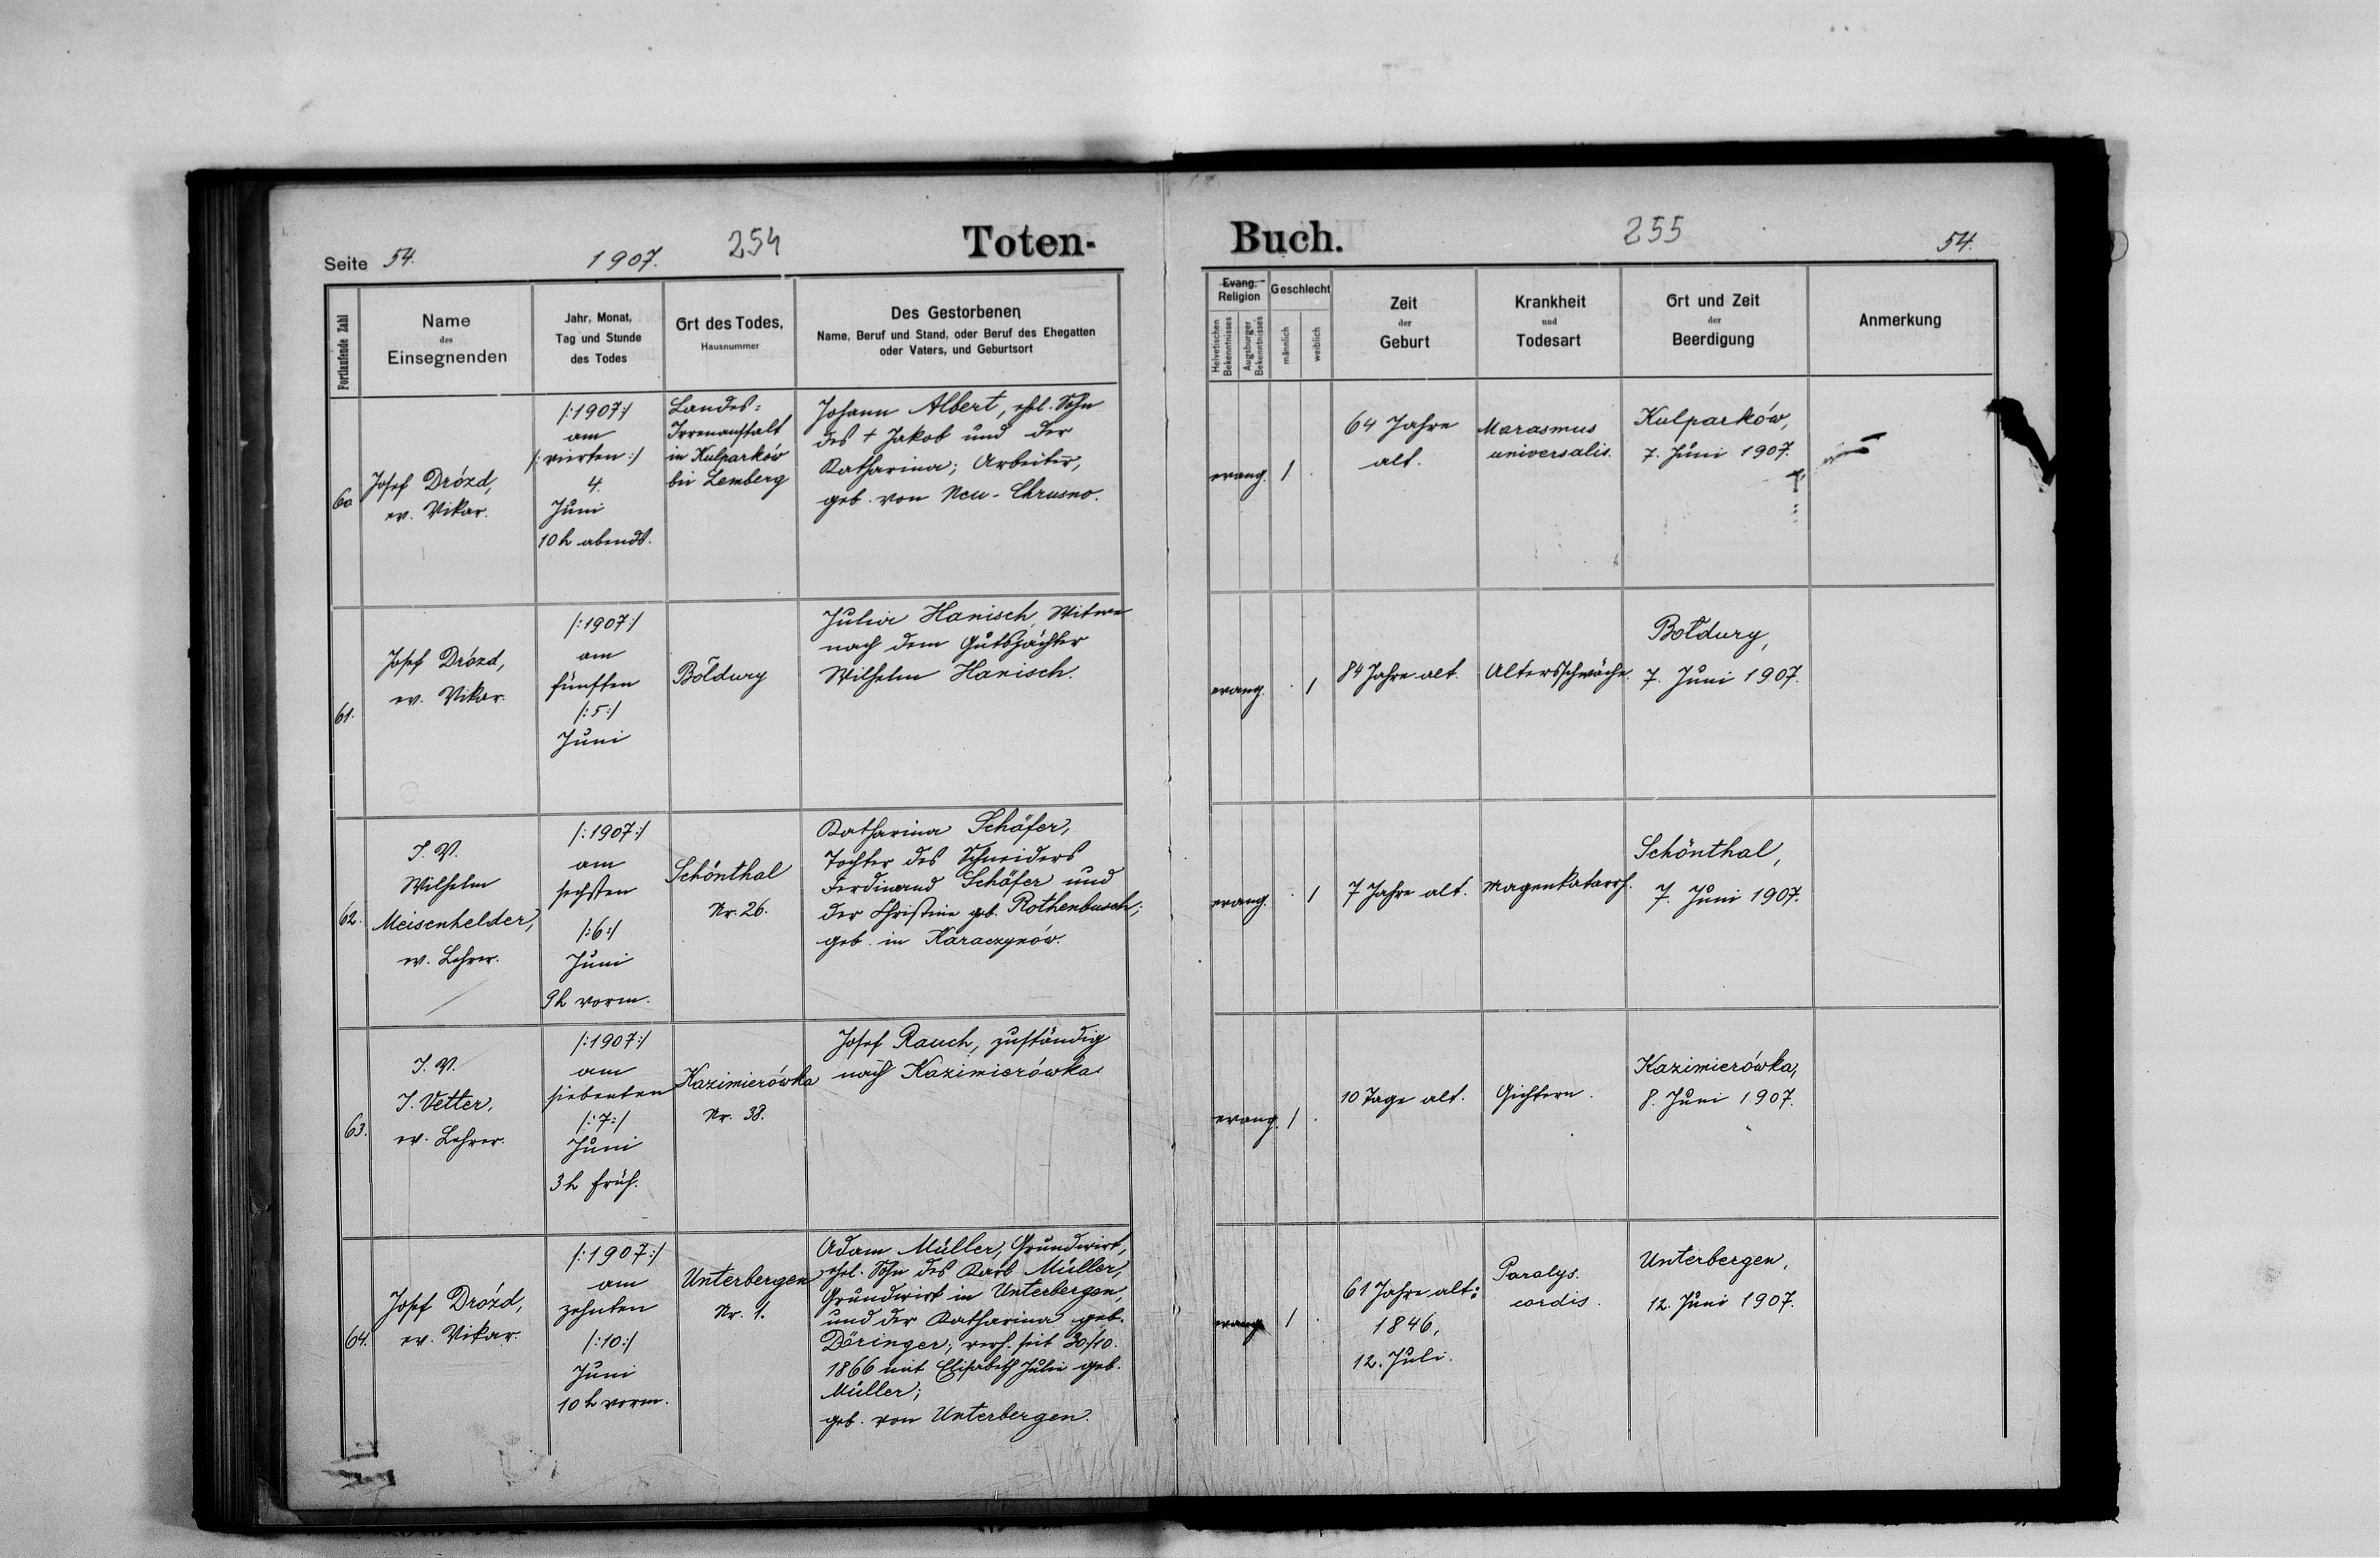 Seite 54.
1907.
254
Toten-
Buch.
255
54.
Fortlaufende Zahl
Name
des
Einsegnenden
Jahr, Monat,
Tag und Stunde
des Todes
Ort des Todes,
Hausnummer
Des Gestorbenen
Name, Beruf und Stand, oder Beruf des Ehegatten
oder Vaters, und Geburtsort
Evang.
Religion
Helvetischen
Bekenntnisses
Augsburger
Bekenntnisses
Geschlecht
männlich
weiblich
Zeit
der
Geburt
Krankheit
und
Todesart
Ort und Zeit
der
Beerdigung
Anmerkung
60
Josef Drózd,
ev. Vikar.
/:1907:/
am
/:vierten:/
4.
Juni
10 h abends.
Landes-
Irrenanstalt
in Kulparków
bei Lemberg
Johann Albert, ehl. Sohn
des + Jakob und der
Katharina; Arbeiter,
geb. von Neu-Chrusno.
evang.
1
.
64 Jahre
alt.
Marasmus
universalis.
Kulparków,
7. Juni 1907.
61.
Josef Drózd,
ev. Vikar.
/:1907:/
am
fünften
/:5:/
Juni
Bołdury
Julia Hanisch, Witwe
nach dem Gutspächter
Wilhelm Hanisch.
evang.
.
1
84 Jahre alt.
Altersschwäche.
Bołdury,
7. Juni 1907.
62.
I. V.
Wilhelm
Meisenhelder,
ev. Lehrer.
/:1907:/
am
sechsten
/:6:/
Juni
9 h vorm.
Schönthal
Nr. 26.
Katharina Schäfer,
Tochter des Schneiders
Ferdinand Schäfer und
der Christine geb. Rothenbusch;
geb. in Karaczynów.
evang.
.
1
7 Jahre alt.
Magenkatarrh.
Schönthal,
7. Juni 1907.
63.
I. V.
J. Vetter,
ev. Lehrer.
/:1907:/
am
siebenten
/:7:/
Juni
3 h früh.
Kazimierówka
Nr. 38.
Josef Rauch, zuständig
nach Kazimierówka
evang.
1
.
10 Tage alt.
Gichtern.
Kazimierówka,
8. Juni 1907.
64.
Josef Drózd,
ev. Vikar.
/:1907:/
am
zehnten
/:10:/
Juni
10 h vorm.
Unterbergen
Nr. 1.
Adam Müller, Grundwirt,
ehel. Sohn des Karl Müller,
Grundwirt in Unterbergen,
und der Katharina geb.
Döringer; verh. seit 30./10.
1866 mit Elisabeth Julie geb.
Müller;
geb. von Unterbergen.
evang.
1
.
61 Jahre alt:
1846,
12. Juli.
Paralys.
cordis.
Unterbergen,
12. Juni 1907.